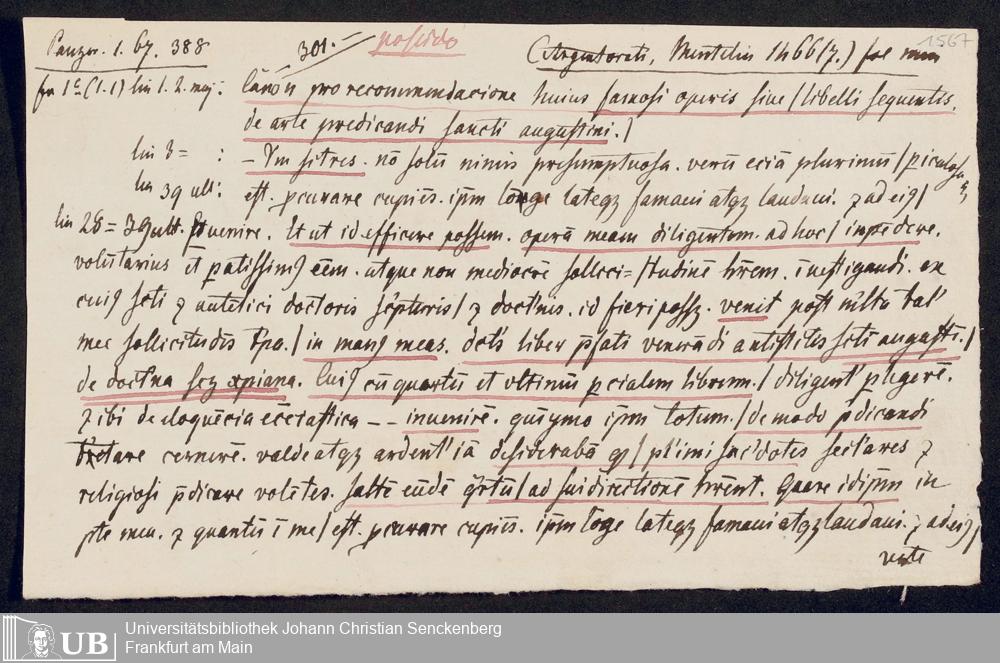 Panzer. 1. 67. 388 301. possido (Argentorati, Mentelin 1466(7.) fol 1567
fol 1ᵃ (l. 1) lin 1. 2. maj: Canon pro recommendacione huius famosi operis siue / libelli sequentis.
de arte predicandi sancti augustini. /
lin 3 = : – Ym fřtres. nō solū nimis presumptuosa. verū eciā plurimū /
lin 39 ult: est. pcurare cupiēs. ipm lōge lateqz famari atqz laudari. ⁊ ad eiꝰ /
lin 28 = 39 ult. venire. Et ut id efficere possem. operā meam diligentem. ad hoc / inpedere.
volūtarius et eēm. atque non mediocrē sollici= / tudinē hrēm. īuestigandi. ex
cuiꝰ scti ⁊ autētici doctoris scpturis / ⁊ doctrīnis. id fieri possz. venit post
mee sollicitudīs / in manꝰ meas. liber pfati venerādi antistitis scti augustī. /
de doctna scz xpiana. Cuiꝰ cū quartū et vltimū pcialem librum. / diligent' plegerē.
⁊ ibi de eloquēcia – – inuenirē. ipm totum. / de modo pdicandi
cernerē. valde atqz ardent' iā desiderabā qȝ / pl'imi sacerdotes ⁊
religiosi pdicare volētes. saltē eūdē qrtū / ad sui directionē hrēnt. Quare id ipm in
pte mea. ⁊ quantū ī me / est. pcurare cupiēs. ipm lōge lateqz famari atqz laudari. ⁊ ad eiꝰ /
UB Universitätsbibliothek Johann Christian Senckenberg
Frankfurt am Main